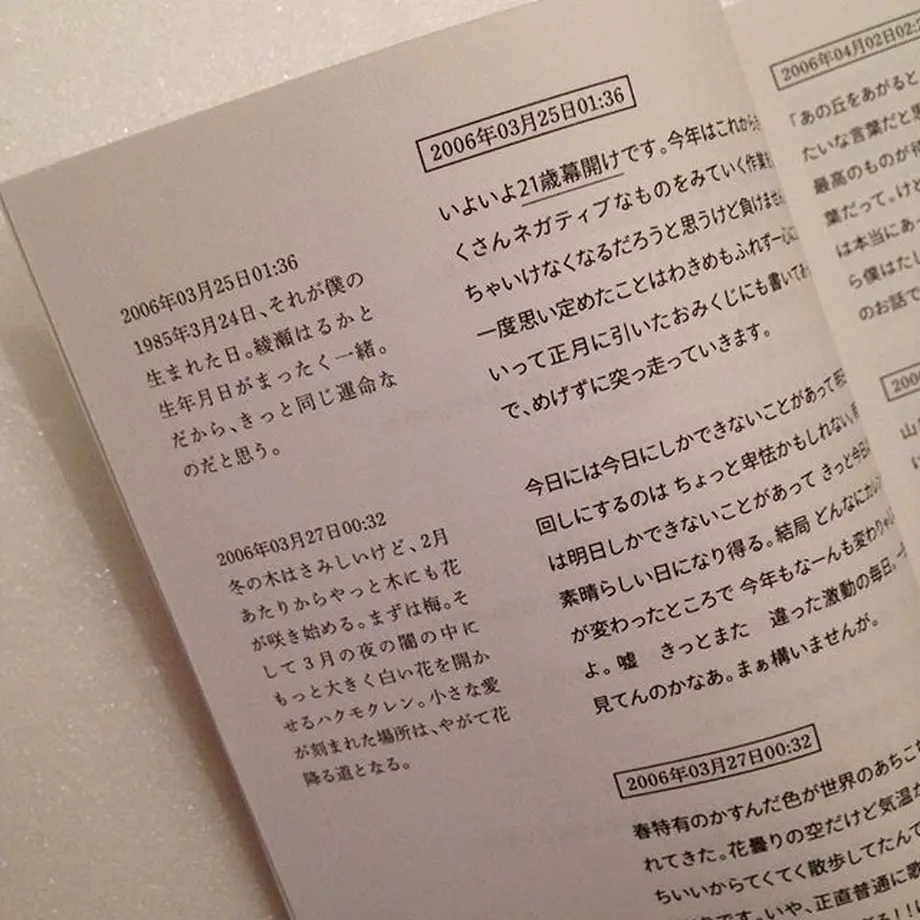 2006年03月25日01:36
1985年3月24日、それが僕の
生まれた日。綾瀬はるかと
生年月日がまったく一緒。
だから、きっと同じ運命な
のだと思う。
2006年03月27日00:32
冬の木はさみしいけど、2月
あたりからやっと木にも花
が咲き始める。まずは梅。そ
して3月の夜の闇の中に
もっと大きく白い花を開か
せるハクモクレン。小さな愛
が刻まれた場所は、やがて花
降る道となる。
2006年03月25日01:36
いよいよ21歳幕開けです。今年はこれから
くさんネガティブなものをみていく作業
ちゃいけなくなるだろうと思うけど負けません
一度思い定めたことはわきめもふれず一心に
いって正月に引いたおみくじにも書いてあ
で、めげずに突っ走っていきます。
今日には今日にしかできないことがあって
回しにするのは ちょっと卑怯かもしれない。
は明日しかできないことがあって きっと今日
素晴らしい日になり得る。結局 どんなに
が変わったところで 今年もなーんも変わりゃ
よ。嘘　きっとまた　違った激動の毎日。
見てんのかなあ。まぁ構いませんが。
2006年03月27日00:32
春特有のかすんだ色が世界のあちこち
れてきた。花曇りの空だけど気温が
ちいいからてくてく散歩してたんで
です。いや、正直普通に歌
2006年04月02日02:
「あの丘をあがると、
たいな言葉だと思
最高のものが
葉だって。けど
は本当にあっ
ら僕はたし
のお話で
200
山